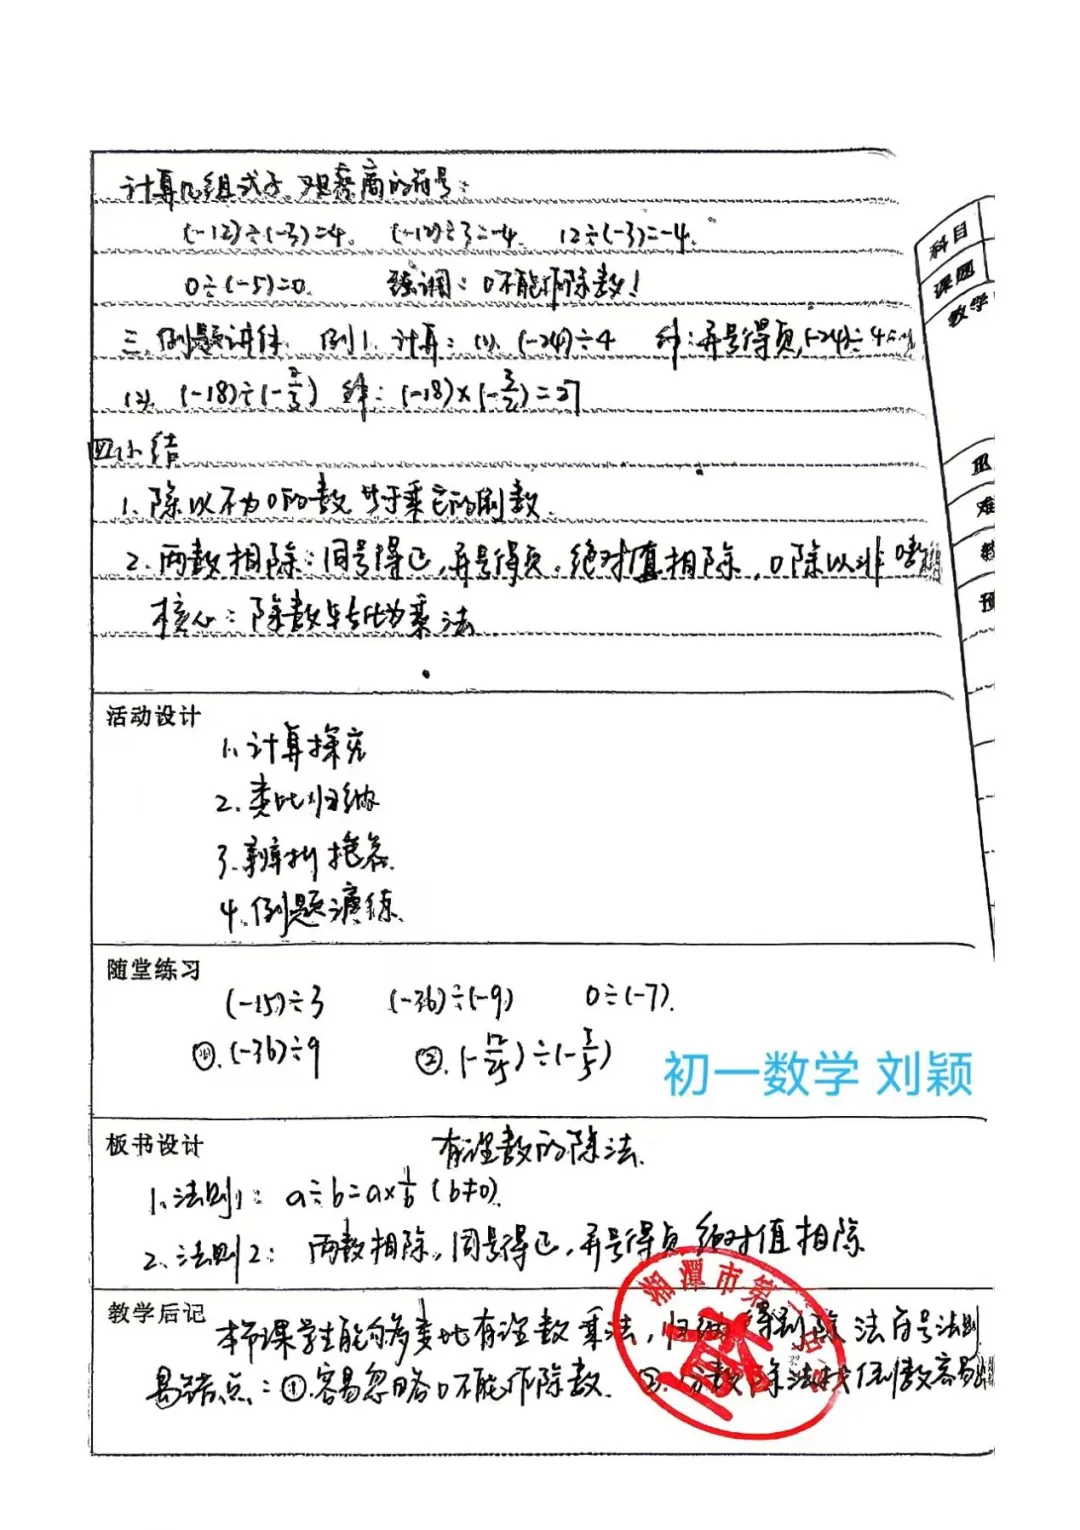 计算几组式子,观察商的符号:
(-12)÷(-3)=4。 (-12)÷3=-4. 12÷(-3)=-4.
0÷(-5)=0. 强调:0不能作除数!
三.例题讲体. 例1. 计算:(1). (-24)÷4 解:异号得负,(-24)÷4=
(2). (-18)÷(-2/3) 解:(-18)×(-3/2)=27
四小结
1.除以不为0的数,等于乘它的倒数.
2.两数相除:同号得正,异号得负,绝对值相除,0除以非0
核心:除数转化为乘法.
活动设计
1.计算探究
2.类比归纳
3.辨析
4.例题演练.
随堂练习
(-15)÷3 (-36)÷(-9) 0÷(-7).
①.(-36)÷9 ②.(-12/25)÷(-3/5)
初一数学 刘颖
板书设计 有理数的除法.
1.法则1: a÷b=a×1/b (b≠0).
2.法则2: 两数相除,同号得正,异号得负,绝对值相除
教学后记 本节课学生能够类比有理数乘法,归纳得到除法符号法则
易错点:①.容易忽略0不能作除数. ②.分数除法找倒数容易
湘潭市第
科目
课题
教学
难
教
预